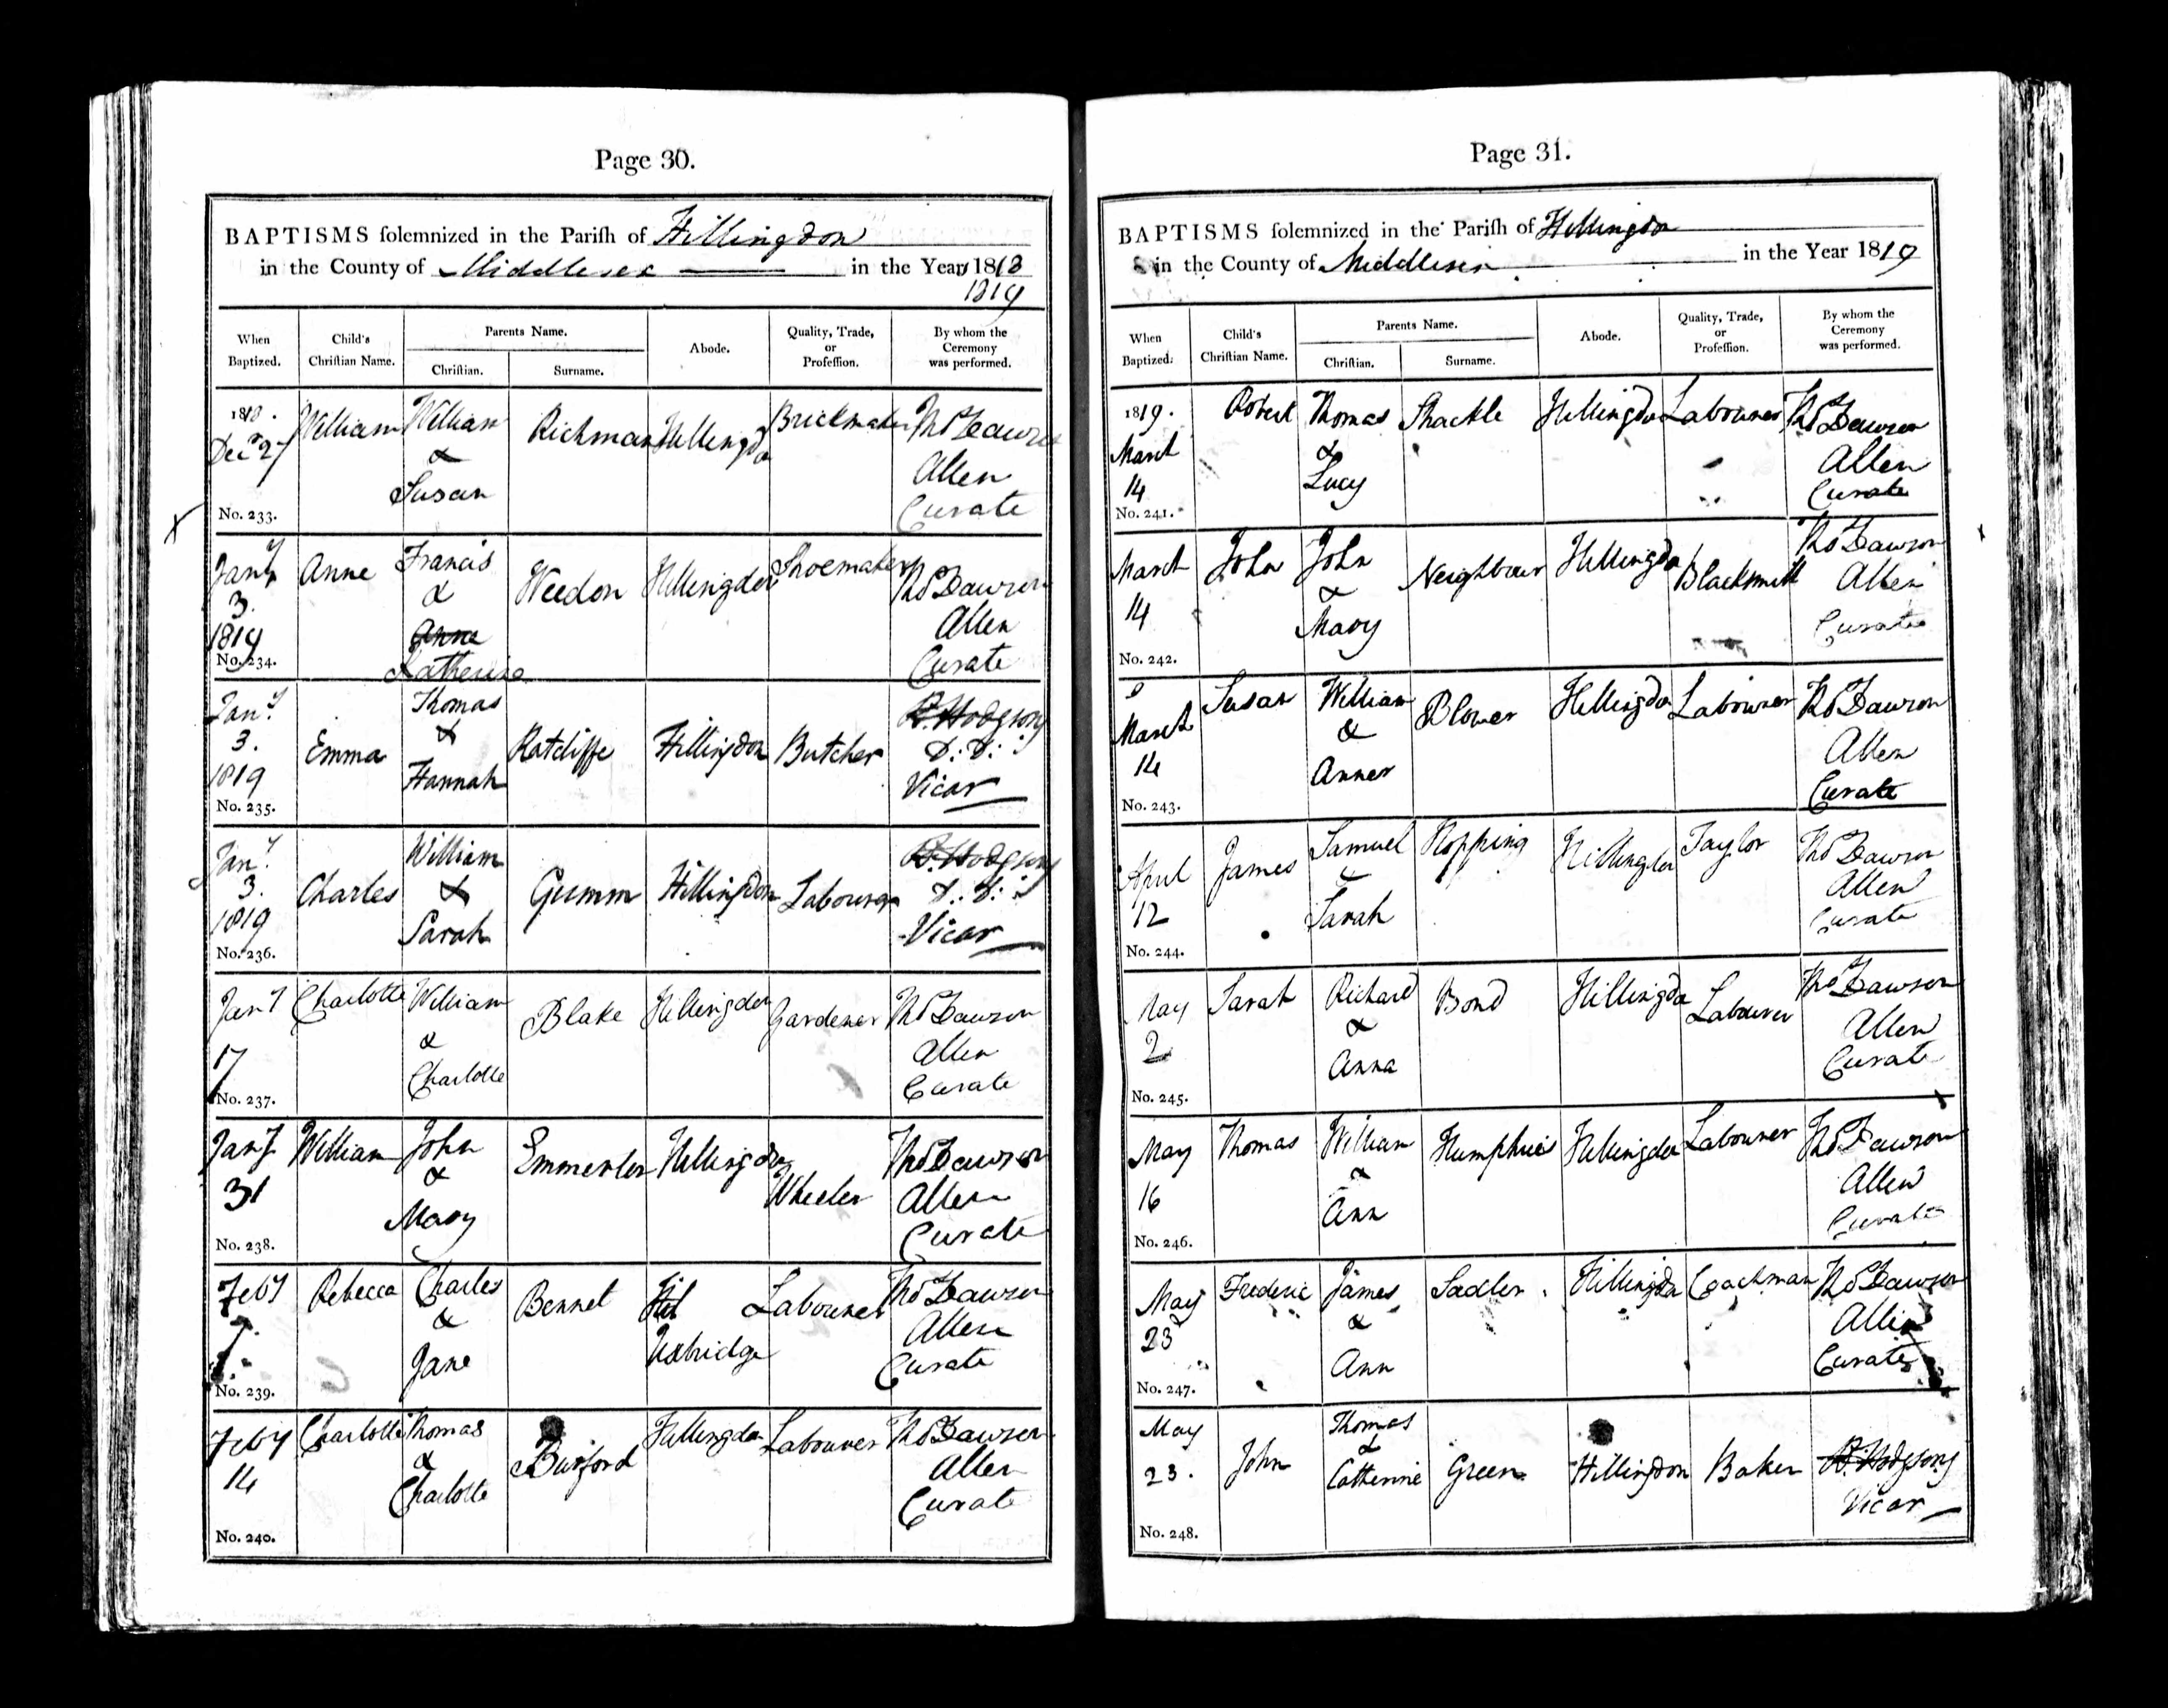 Page 30.
BAPTISMS solemnized in the Parish of Hillingdon
in the County of Middlesex in the Year 1818
1819
When Baptized. Child's Christian Name. Parents Name. Christian. Surname. Abode. Quality, Trade, or Profession. By whom the Ceremony was performed.
1818. Decr 27 William William & Susan Richman Hillingdon Brickmaker Thos Dawson Allen Curate
No. 233.
Jany 3. 1819 Anne Francis & Anne Katherine Weedon Hillingdon Shoemaker Thos Dawson Allen Curate
No. 234.
Jany 3. 1819 Emma Thomas & Hannah Ratcliffe Hillingdon Butcher R. Hodgson D: D: Vicar
No. 235.
Jany 3. 1819 Charles William & Sarah Gumm Hillingdon Labourer R. Hodgson D: D: Vicar
No. 236.
Jany 17 Charlotte William & Charlotte Blake Hillingdon Gardener Thos Dawson Allen Curate
No. 237.
Jany 31 William John & Mary Hillingdon Wheeler Thos Dawson Allen Curate
No. 238.
Feby 7. Rebecca Charles & Jane Bennet Hil Uxbridge Labourer Thos Dawson Allen Curate
No. 239.
Feby 14 Charlotte Thomas & Charlotte Burford Hillingdon Labourer Thos Dawson Allen Curate
No. 240.
Page 31.
BAPTISMS solemnized in the Parish of Hillingdon
in the County of Middlesex in the Year 1819
When Baptized. Child's Christian Name. Parents Name. Christian. Surname. Abode. Quality, Trade, or Profession. By whom the Ceremony was performed.
1819. March 14 Robert Thomas & Lucy Shackle Hillingdon Labourer Thos Dawson Allen Curate
No. 241.
March 14 John John & Mary Neighbour Hillingdon Blacksmith Thos Dawson Allen Curate
No. 242.
March 14 Susan William & Blower Hillingdon Labourer Thos Dawson Allen Curate
No. 243.
April 12 James Samuel & Sarah Hopping Hillingdon Taylor Thos Dawson Allen Curate
No. 244.
May 2 Sarah Richard & Anna Bond Hillingdon Labourer Thos Dawson Allen Curate
No. 245.
May 16 Thomas William & Ann Humphries Hillingdon Labourer Thos Dawson Allen Curate
No. 246.
May 23 Frederic James & Ann Sadler Hillingdon Coachman Thos Dawson Allen Curate
No. 247.
May 23. John Thomas & Catherine Green Hillingdon Baker R. Hodgson Vicar
No. 248.